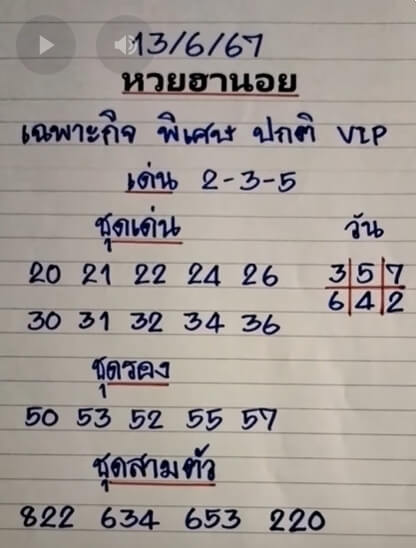 13/6/67
หวยฮานอย
เฉพาะกิจ พิเศษ ปกติ VIP
เด่น 2-3-5
ชุดเด่น
วัน
20 21 22 24 26
3 5 7
30 31 32 34 36
6 4 2
ชุดรอง
50 53 52 55 57
ชุดสามตัว
822 634 653 220